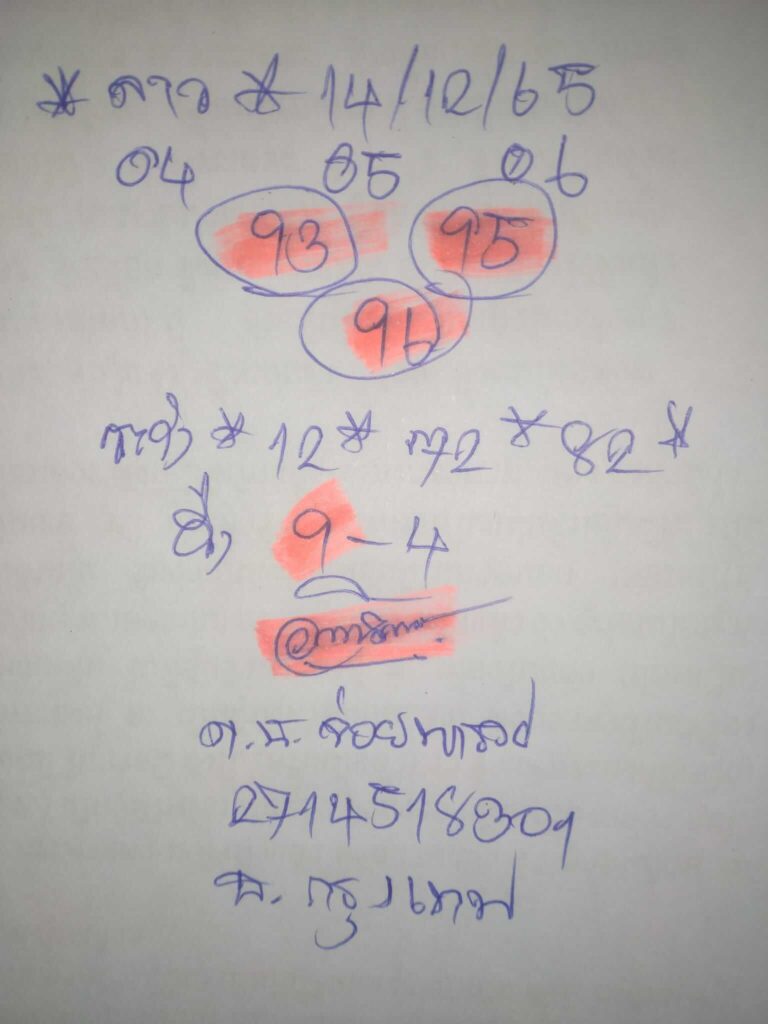 * ลาว * 14/12/65
04 05 06
93 95
96
* 12 * 72 * 82 *
วิ่ง 9-4
ด.น. ช่อย
2714518309
ธ. กรุงเทพ